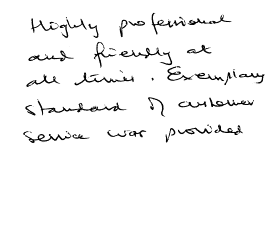 Highly professional
and friendly at
all times. Exemplary
standard of customer
service was provided